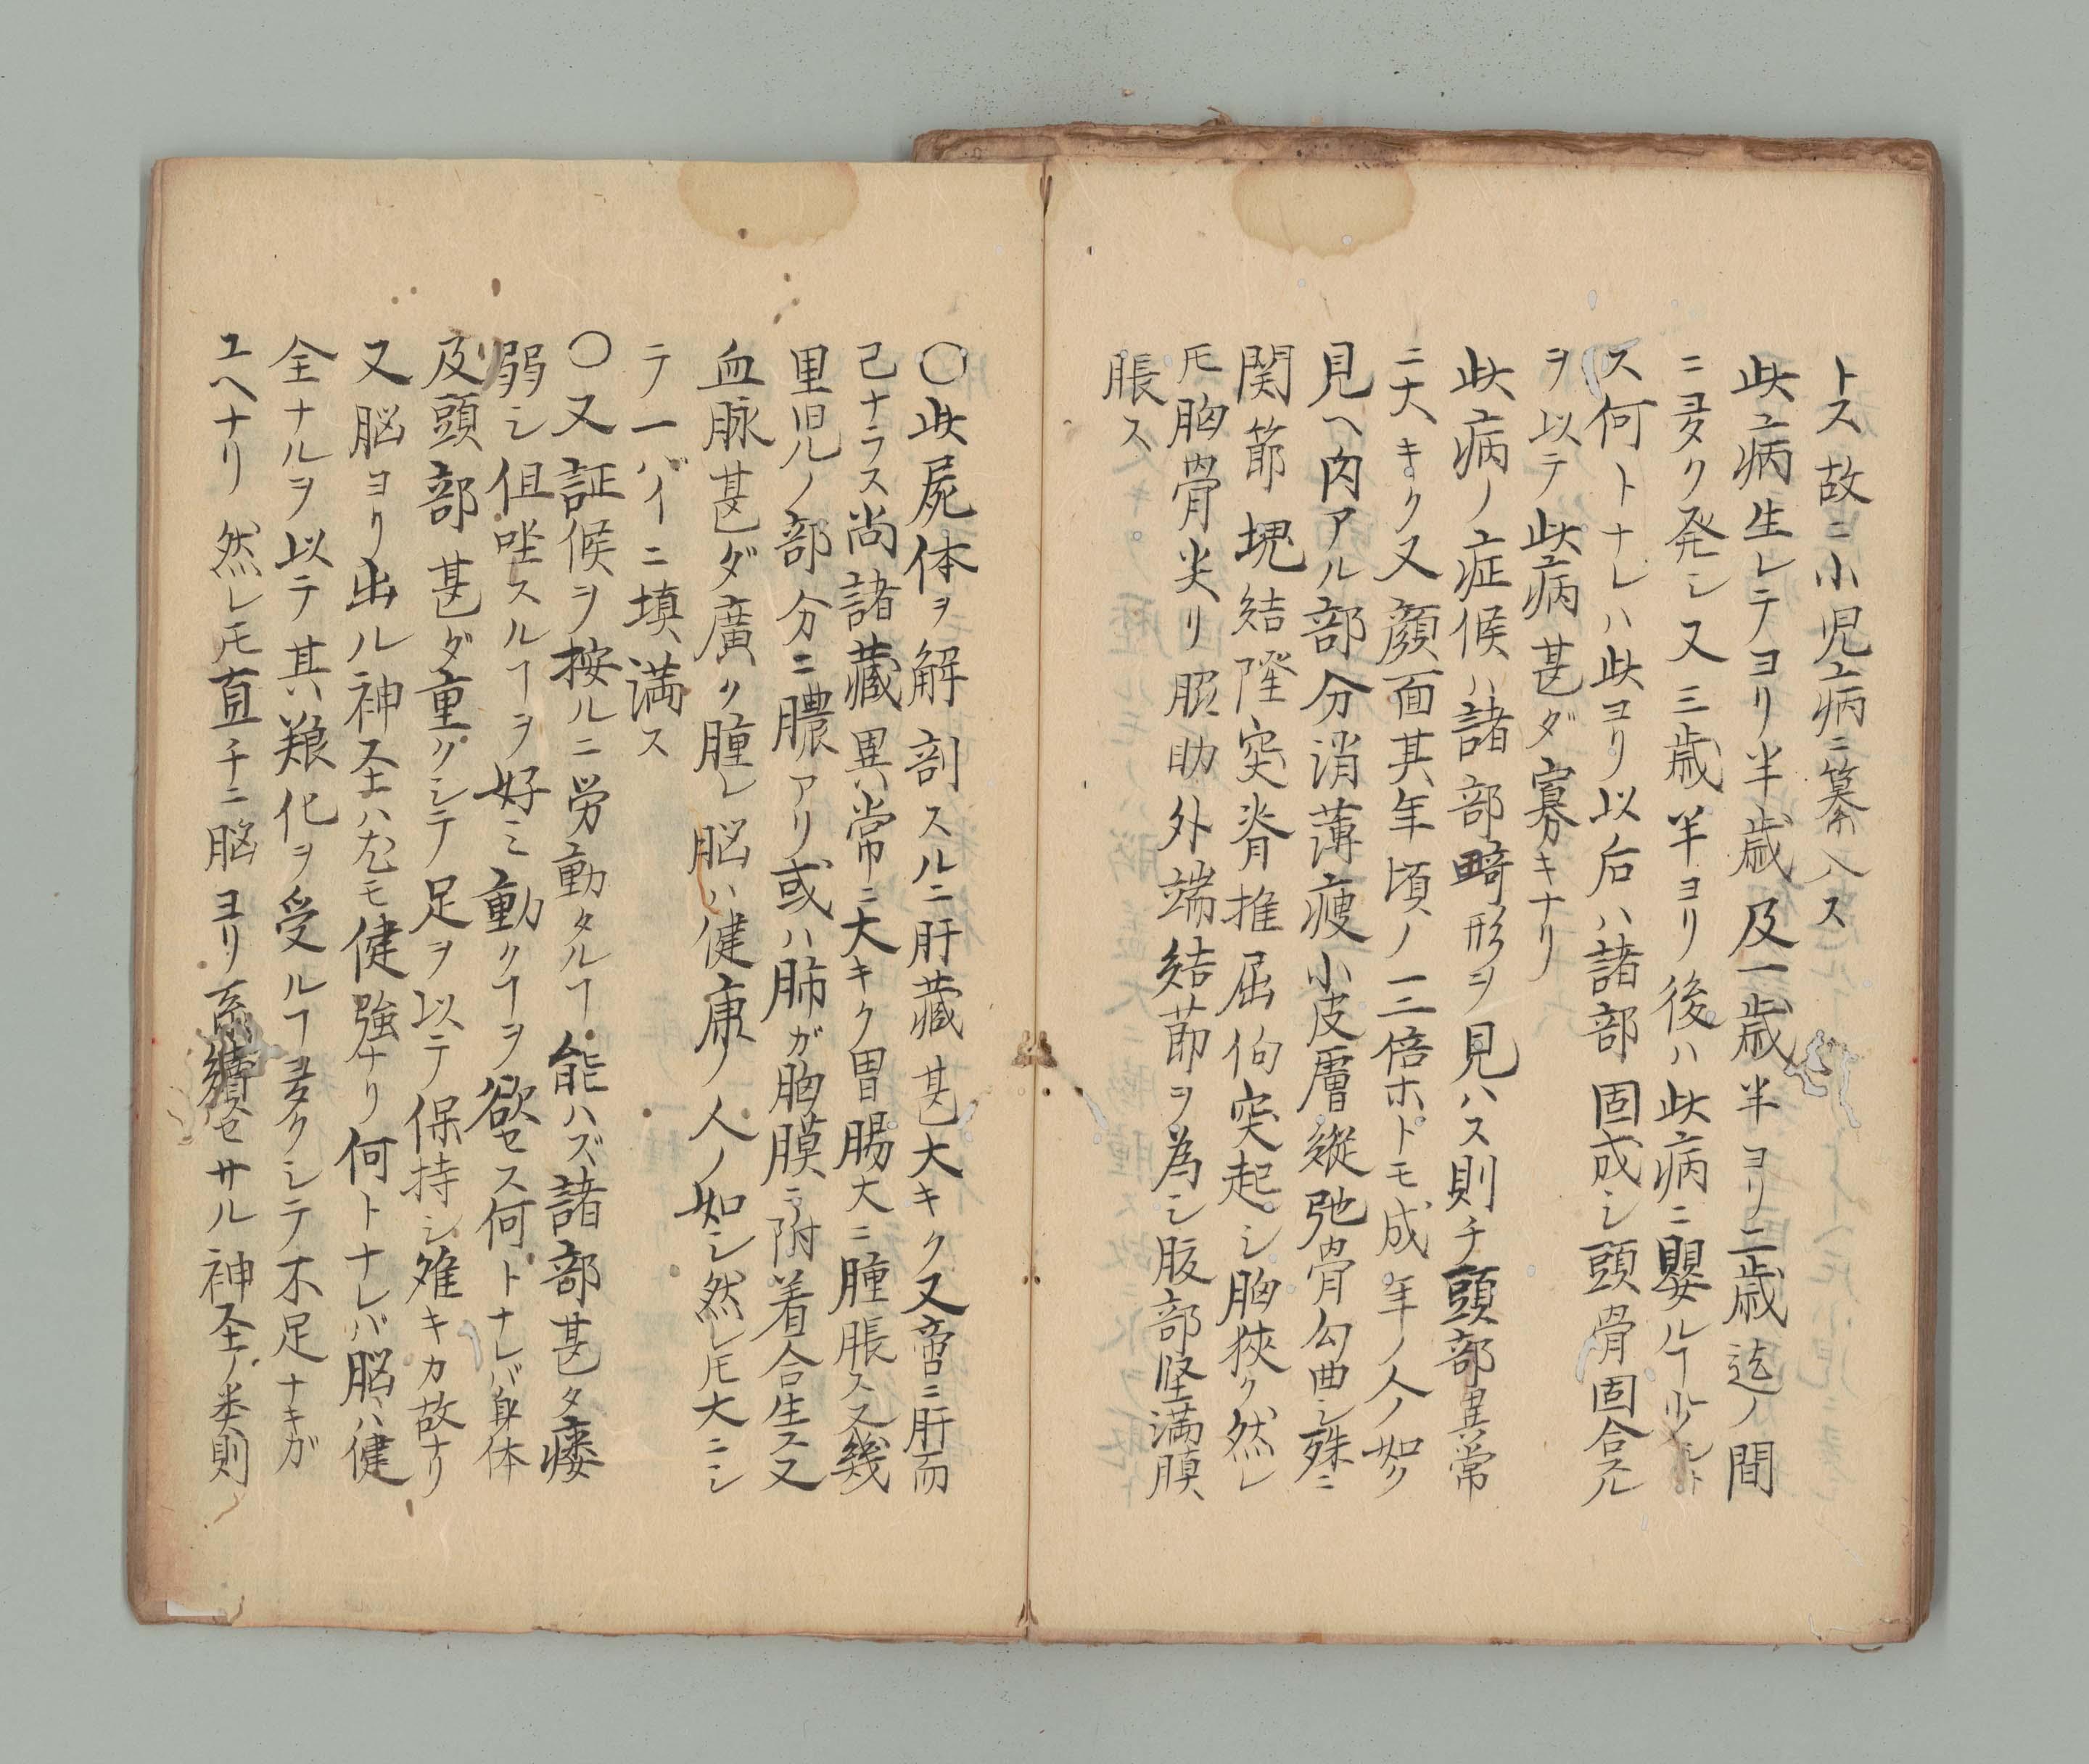 トス故ニ小児病ニ纂入ス
此病生レテヨリ半歳及一歳半ヨリ二歳迄ノ間
ニ多ク発シ又三歳半ヨリ後ハ此病ニ嬰ルヿ少シト
ス何トナレハ此ヨリ以后ハ諸部固成シ頭骨固合スル
ヲ以テ此病甚ダ寡キナリ
此病ノ症候ハ諸部畸形ヲ見ハス則チ頭部異常
ニ大キク又顔面其年頃ノ一二倍ホトモ成年ノ人ノ如ク
見ヘ肉アル部分消薄痩小皮膚縱弛骨勾曲シ殊ニ
関節塊結隆突脊推屈佝突起シ胸狹ク然レ
𪜈胸骨尖リ肋外端結節ヲ為シ腹部堅満膜
脹ス
〇此屍体ヲ解剖スルニ肝藏甚大キク又啻ニ肝而
己ナラス尚諸藏異常ニ大キク胃腸大ニ腫脹ス又幾
里児ノ部分ニ膿アリ或ハ肺ガ胸膜ニ附着合生ス又
血脉甚ダ廣ク腫レ脳ハ健康ノ人ノ如シ然レ𪜈大ニシ
テ一バイニ填満ス
〇又証候ヲ按ルニ労動タルヿ能ハズ諸部甚タ痿
弱シ但唑スルヿヲ好ミ動クヿヲ欲セス何トナレバ身体
及頭部甚ダ重クシテ足ヲ以テ保持シ難キカ故ナリ
又脳ヨリ出ル神圣ハ尤モ健強ナリ何トナレバ脳ハ健
全ナルヲ以テ其ハ釀化ヲ受ルヿ多クシテ不足ナキガ
ユヘナリ然レ𪜈直チニ脳ヨリ系續セサル神圣ノ类則